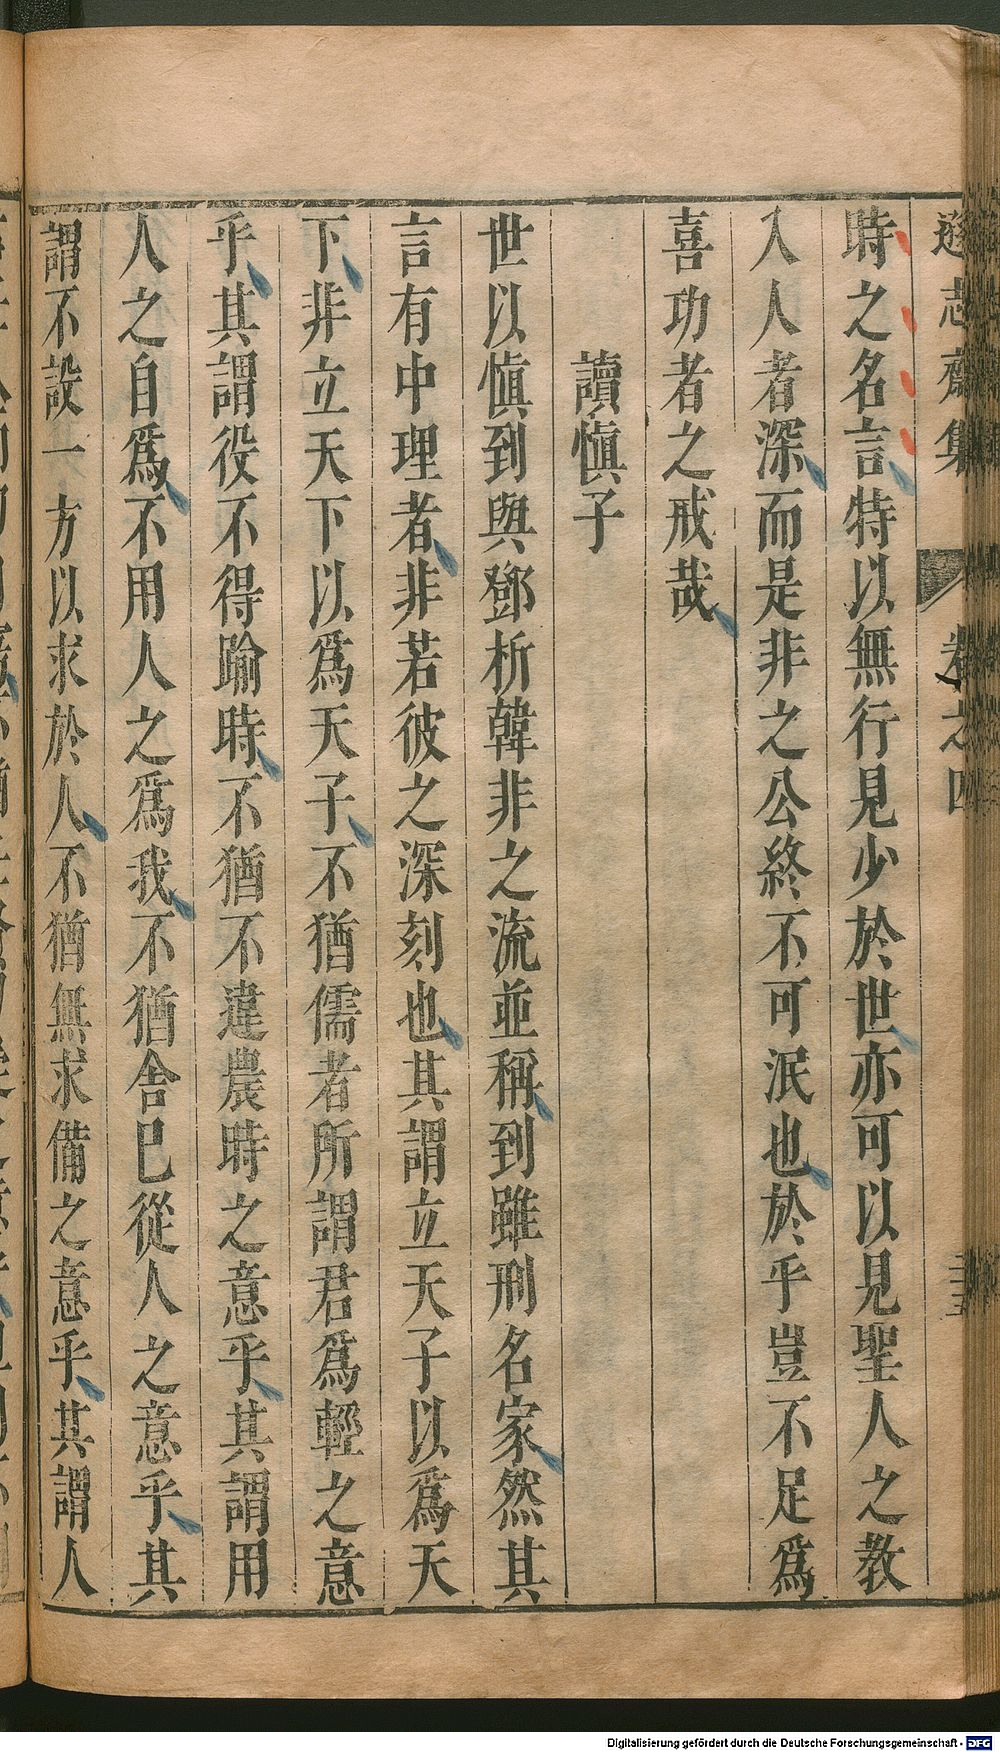 遜志齋集 卷之四
時之名言特以無行見少於世亦可以見聖人之教
入人者深而是非之公終不可泯也於乎豈不足爲
喜功者之戒哉
讀慎子
世以慎到與鄧析韓非之流並稱到雖刑名家然其
言有中理者非若彼之深刻也其謂立天子以爲天
下非立天下以爲天子不猶儒者所謂君爲輕之意
乎其謂役不得踰時不猶不違農時之意乎其謂用
人之自爲不用人之爲我不猶舍巳從人之意乎其
謂不設一方以求於人不猶無求備之意乎其謂人
Digitalisierung gefördert durch die Deutsche Forschungsgemeinschaft - DFG